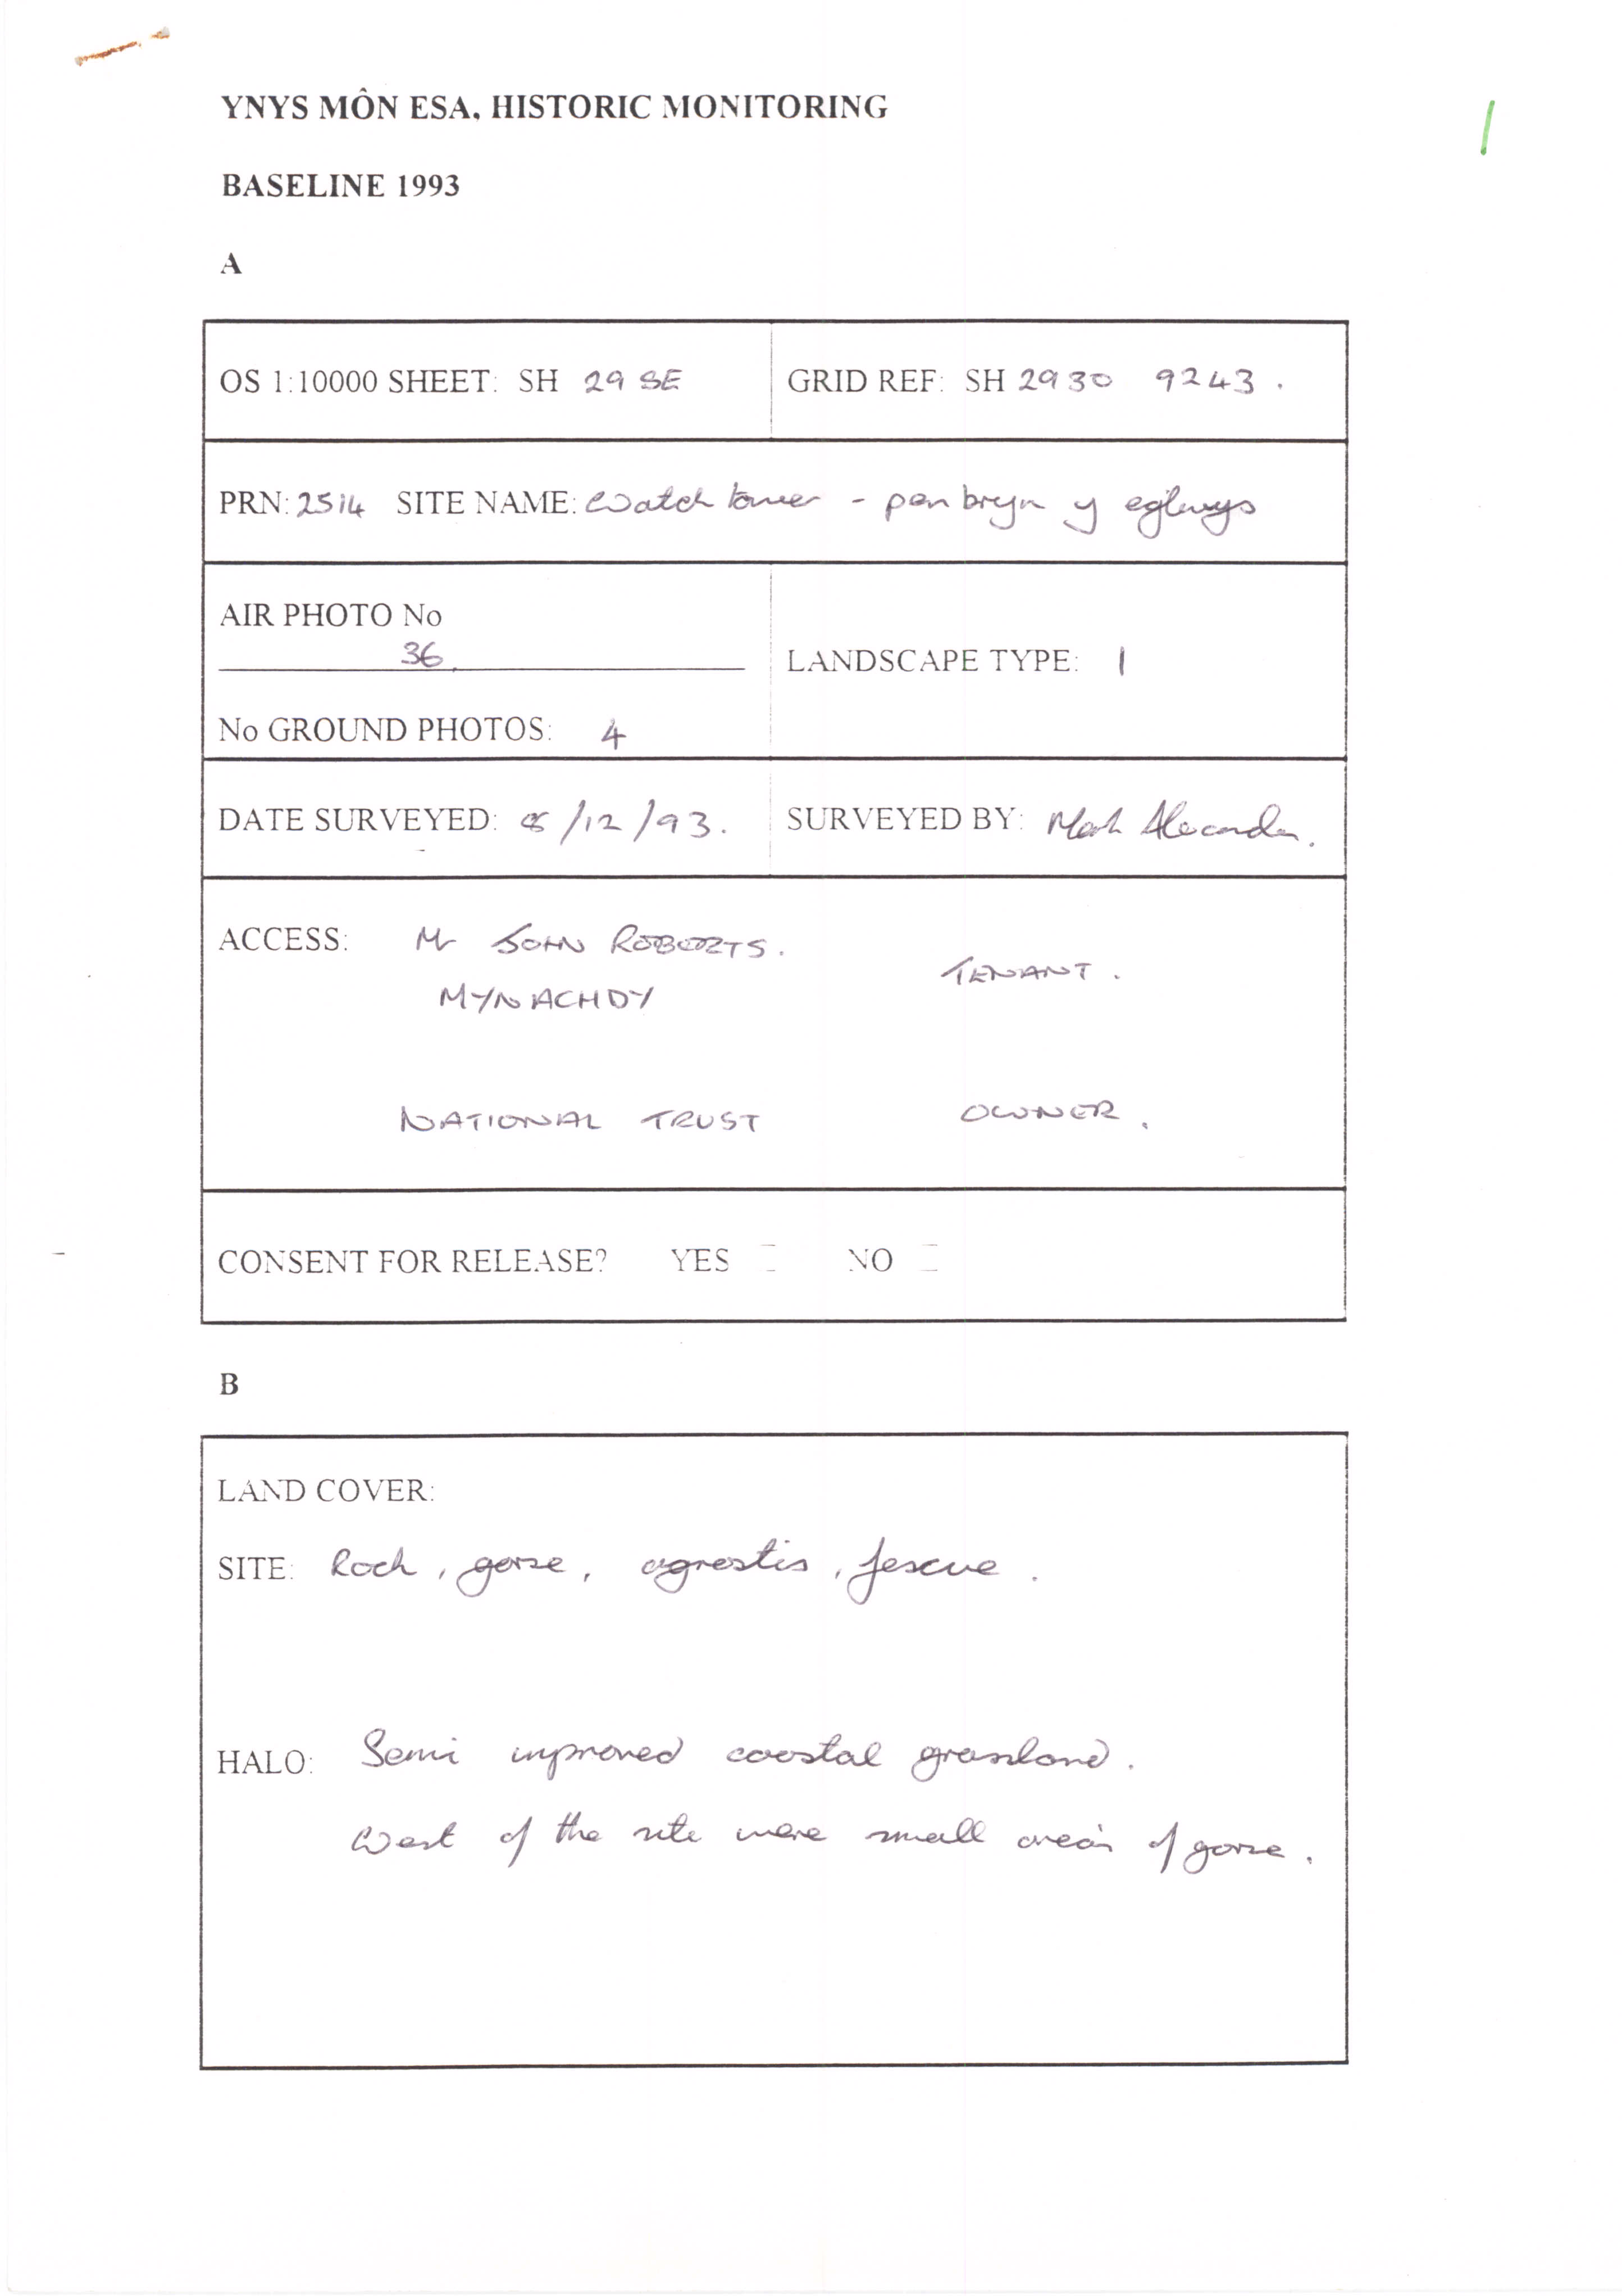 YNYS MÔN ESA. HISTORIC MONITORING
BASELINE 1993
A
OS 1:10000 SHEET: SH 29 SE
GRID REF: SH 2930 9243.
PRN: 2514 SITE NAME: Watch tower - pen bryn y eglwys
AIR PHOTO No
36
LANDSCAPE TYPE: 1
No GROUND PHOTOS: 4
DATE SURVEYED: 8/12/93.
SURVEYED BY: Mark Alexander.
ACCESS: Mr JOHN ROBERTS. TENANT.
MYNACHDY
NATIONAL TRUST OWNER.
CONSENT FOR RELEASE? YES NO
B
LAND COVER:
SITE: Rock, gorse, agrostis, fescue.
HALO: Semi improved coastal grassland.
West of the site were small areas of gorse.